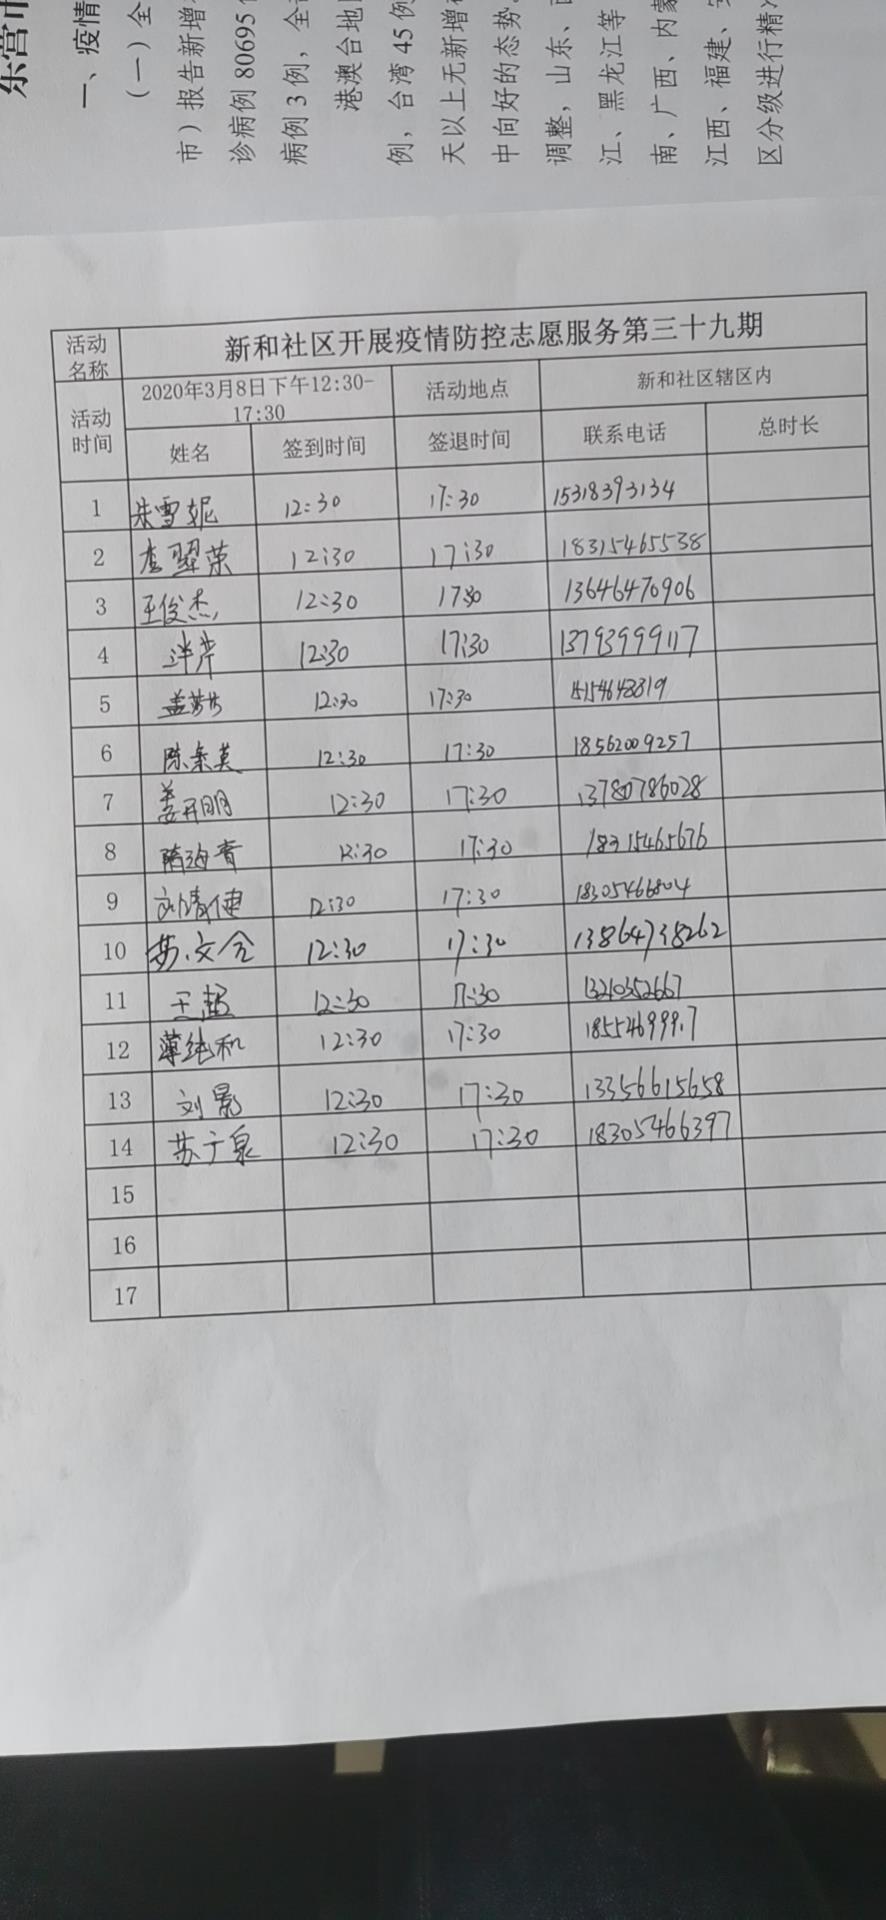 东营市
一、疫情
（一）全
市）报告新增
诊病例 80695
病例 3 例，全
港澳台地
例，台湾 45 例
天以上无新增
中向好的态势。
调整，山东、
江、黑龙江等
南、广西、内蒙
江西、福建、
区分级进行精
活动名称 新和社区开展疫情防控志愿服务第三十九期
活动时间 2020年3月8日下午12:30-17:30 活动地点 新和社区辖区内
姓名 签到时间 签退时间 联系电话 总时长
1 朱雪妮 12:30 17:30 15318393134
2 李翠荣 12:30 17:30 18315465538
3 王俊杰 12:30 17:30 13646470906
4 12:30 17:30 13793999117
5 盖芳芳 12:30 17:30
6 陈秉英 12:30 17:30 18562009257
7 姜开明 12:30 17:30 13780786028
8 隋海青 12:30 17:30 18315465676
9 刘清健 12:30 17:30 18305466804
10 苏文全 12:30 17:30 13864738262
11 王超 12:30 17:30 13210352667
12 薄纯和 12:30 17:30
13 刘景 12:30 17:30 13356615658
14 苏广泉 12:30 17:30 18305466397
15
16
17